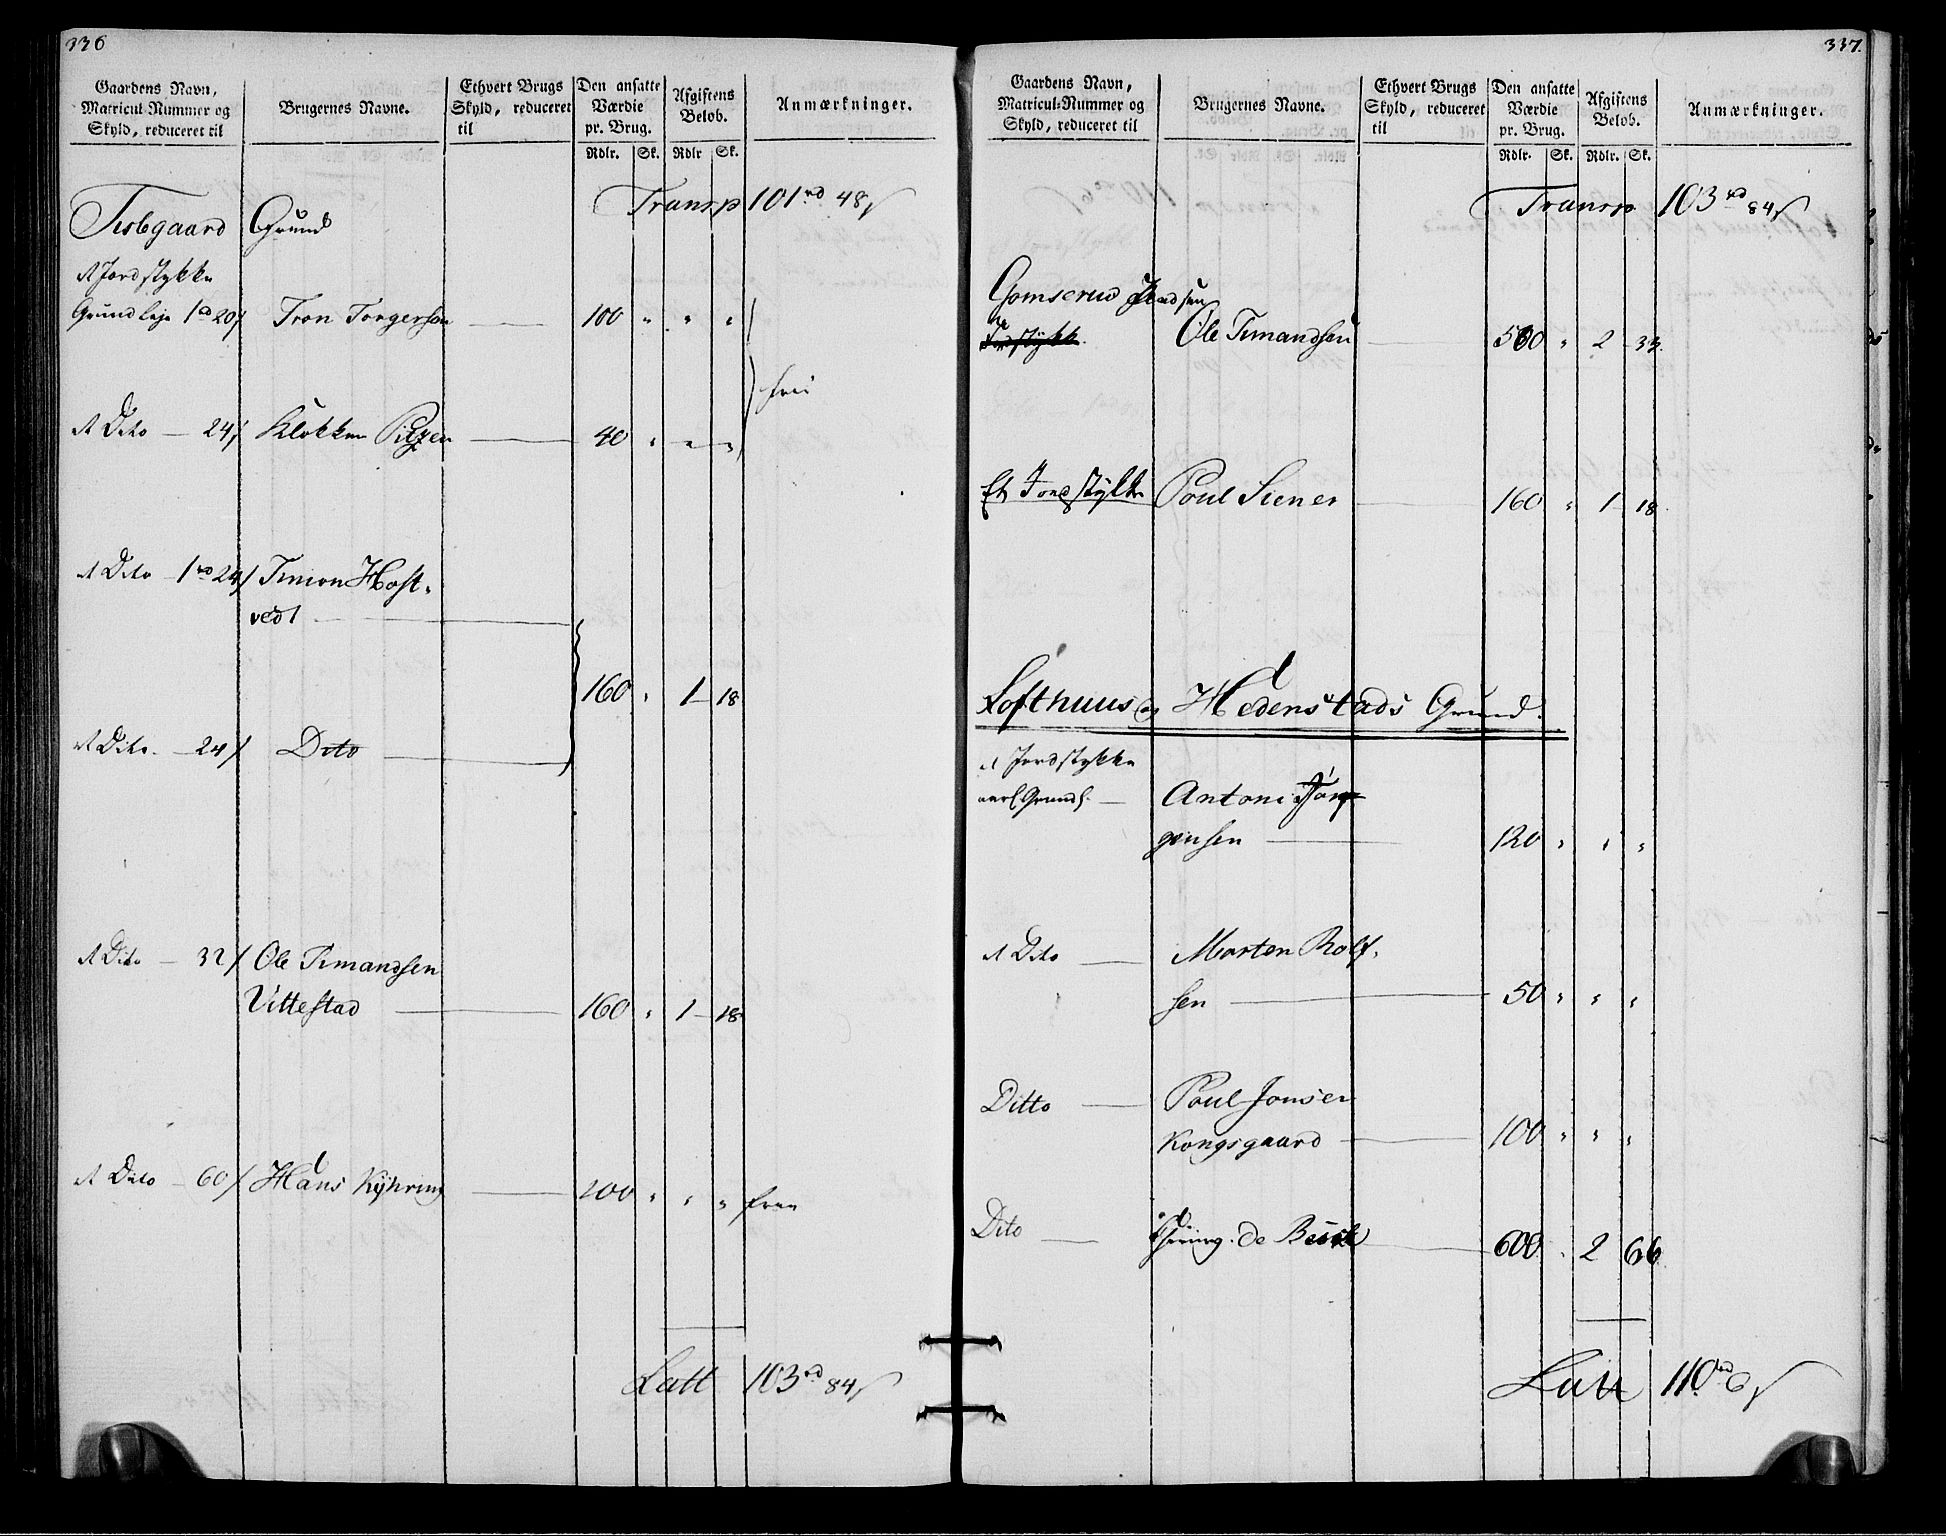 336
Gaardens Navn,
Matricul-Nummer og
Skyld, reduceret til
Brugernes Navne.
Ethvert Brugs
Skyld, reduceret
til
Den ansatte
Værdie
pr. Brug.
Afgiftens
Beløb.
Anmærkninger.
Rdlr. Sk. Rdlr Sk.
Transp 101 rd 48 s
Grund
Jordstykke
Grundleje 1 rd 20 s Tron Torgersen 100 " " "
frie
Dito 24 s 40 " " "
Dito 1 rd 24 s Simon Host-
vedt
160 " 1 18
Dito. 24 s Dito
Dito 32 s Ole Simandsen
Vittestad 160 " 1 18
Dito 60 s Hans Kyhring 200 " " "
Latt 103 rd 84 s
337.
Gaardens Navn,
Matricul-Nummer og
Skyld, reduceret til
Brugernes Navne.
Ethvert Brugs
Skyld, reduceret
til
Den ansatte
Værdie
pr. Brug.
Afgiftens
Beløb.
Anmærkninger.
Rdlr. Sk. Rdlr. Sk.
Transp 103 rd 84 s
Gomserud
Ole Simandsen 500 " 2 33.
Et Jordstykke Poul 160 " 1 18
Lofthuus og Hedenstads Grund.
Jordstykke
Antoni Jør-
gensen 120 " " "
Dito Morten Rolf-
sen 50 " " "
Ditto Poul Jonsen
Kongsgaard 100 " " "
Dito de Besche 600 " 2 66
Latt 110 rd 6 s